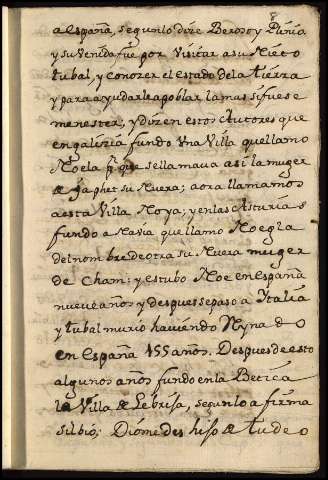 8
a España, segun lo dize Beroso y Plinio
y su Venida fue por Visitar a su Nieto
tubal, y conozer el estado de la tierra
y para ayudarle a poblar la mas si fuese
menester, y dizen estos Autores que
en galizia fundo Una Villa que llamo
Noela pr. que se llamava asi la muger
de Japhet su Nuera; aora llamamos
a esta Villa Noya; y en las Asturias
fundo a Navia que llamo Noegla
del nombre de otra su Nuera muger
de Cham; y estubo Noe en España
nueve años y despues se paso a Italia
y tubal murio haviendo Rynado
en España 155 años. Despues de esto
algunos años fundo en la Betica
la Villa de Lebrija, segun lo afirma
silbio; Diomedes hijo de tudeo